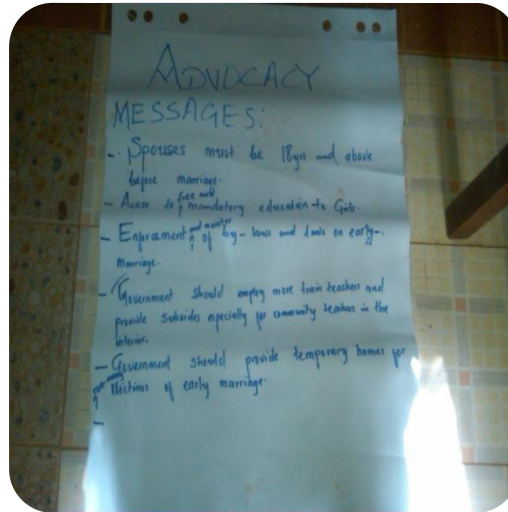 ADVOCACY
MESSAGES:
- Spouses must be 18yrs and above
before marriage.
- Acess to free and mandatory education to Girls.
- Enforcement and monitor of by-laws and laws on early
marriage.
- Government should employ more train teachers and
provide subsides especially for community teachers in the
interior.
- Government should provide temporary homes for
victims of early marriage.
-